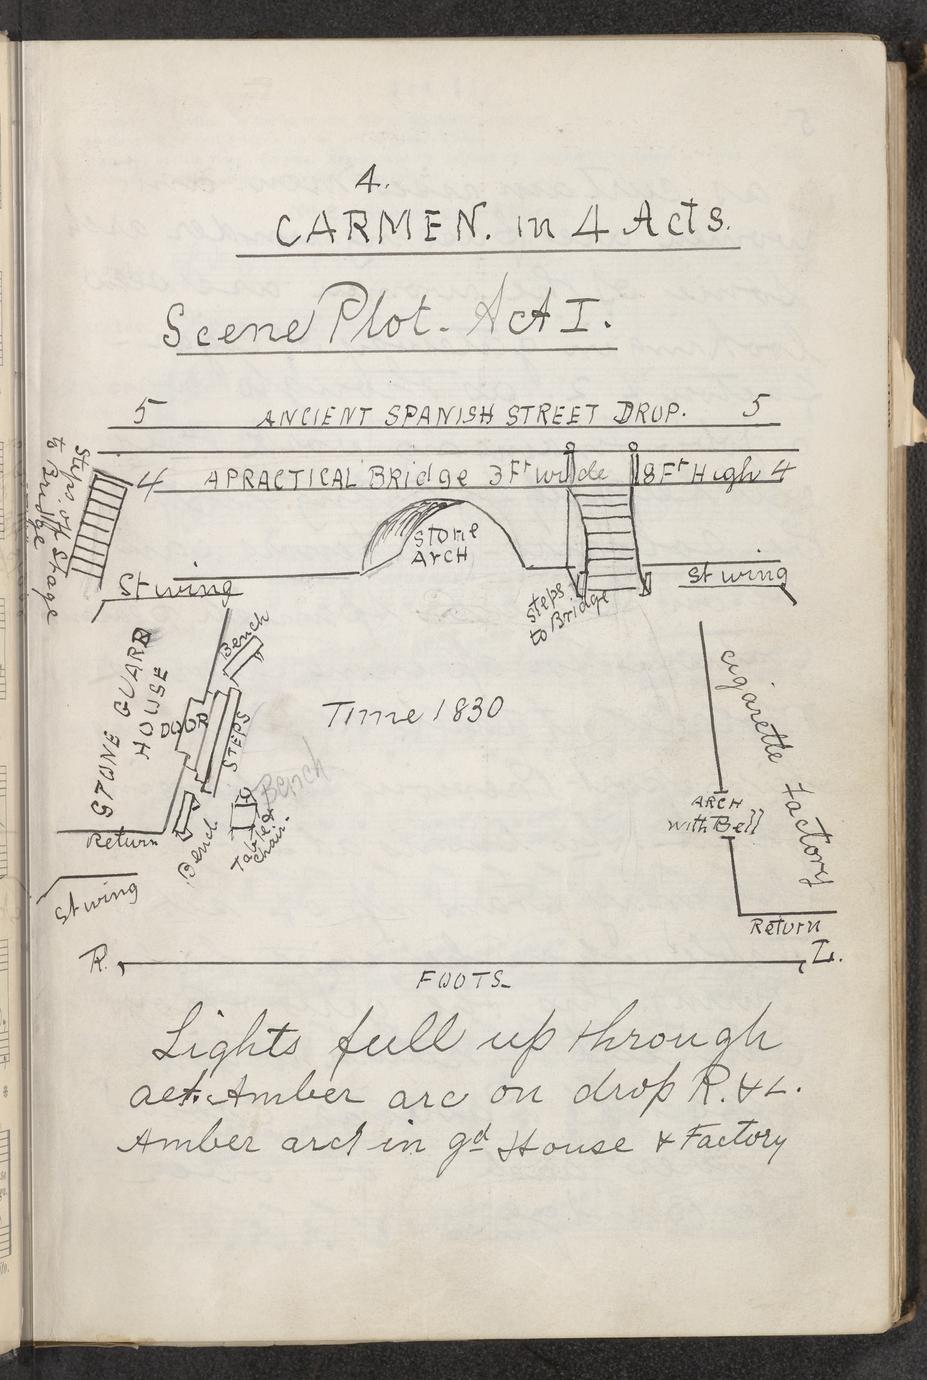 4.
CARMEN. in 4 Acts.
Scene Plot. Act I.
5 ANCIENT SPANISH STREET DROP. 5
4 A PRACTICAL Bridge 3 Ft wide 8 Ft High 4
Steps off Stage
to Bridge
Stone
Arch
St wing
St wing
Steps
to Bridge
STONE GUARD
HOUSE
Bench
DOOR
STEPS
Time 1830
Cigarette Factory
Bench
ARCH
with Bell
Return
Bench
Table &
chair.
St wing
Return
R. L.
FOOTS
Lights full up through
act. Amber arc on drop R. & L.
Amber arc in gd House & Factory